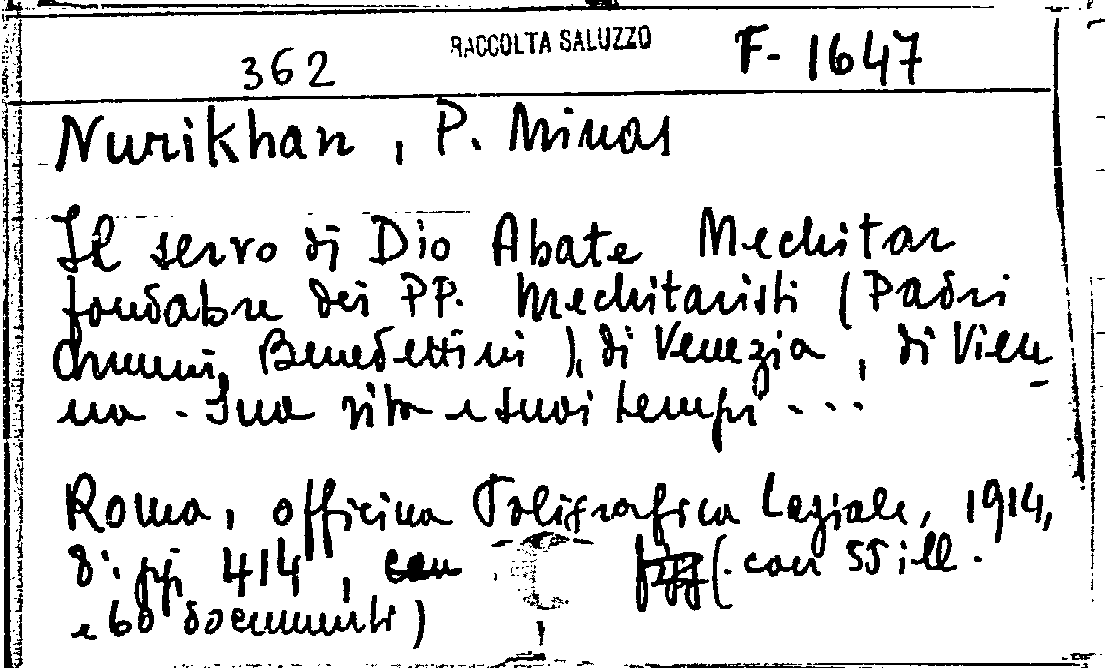 362 RACCOLTA SALUZZO F-1647
Nurikhan, P. Minas
Il servo di Dio Abate Mechitar
fondatore dei PP. Mechitaristi (Padri
Armeni Benedettini), di Venezia, di Vien
na - Sua vita e suoi tempi...
Roma, officina Poligrafica Laziale, 1914,
8° pp 414, (con 55 ill.
e 60 documenti)